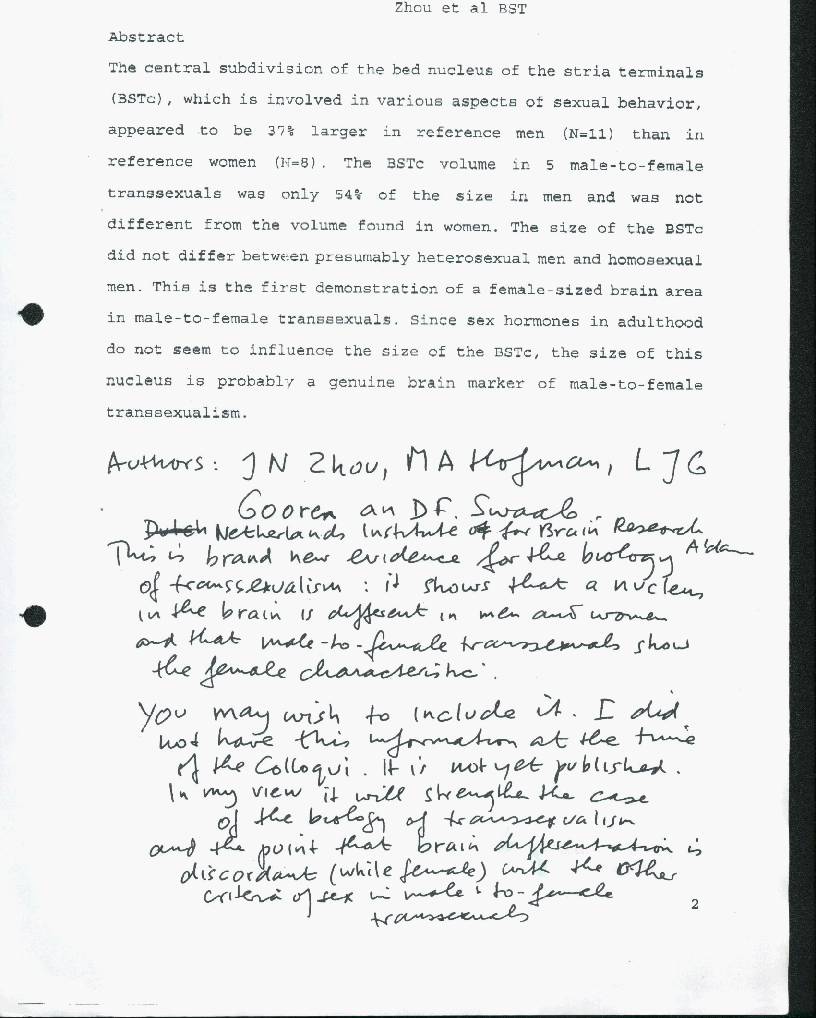 Zhou et al BST
Abstract
The central subdivision of the bed nucleus of the stria terminals
(BSTc), which is involved in various aspects of sexual behavior,
appeared to be 37% larger in reference men (N=11) than in
reference women (N=8). The BSTc volume in 5 male-to-female
transsexuals was only 54% of the size in men and was not
different from the volume found in women. The size of the BSTc
did not differ between presumably heterosexual men and homosexual
men. This is the first demonstration of a female-sized brain area
in male-to-female transsexuals. Since sex hormones in adulthood
do not seem to influence the size of the BSTc, the size of this
nucleus is probably a genuine brain marker of male-to-female
transsexualism.
Authors: J N Zhou, M A Hofman, L J G
Gooren an D F. Swaab.
Dutch Netherlands Institute of for Brain Research
A'dam
This is brand new evidence for the biology
of transsexualism : it shows that a nucleus
in the brain is different in men and women
and that male-to-female transsexuals show
the female characteristic.
You may wish to include it. I did
not have this information at the time
of the Colloqui. It is not yet published.
In my view it will strengthe the case
of the biology of transsexualism
and the point that brain differentiation is
discordant (while female) with the other
criteria of sex in male-to-female
transsexuals
2